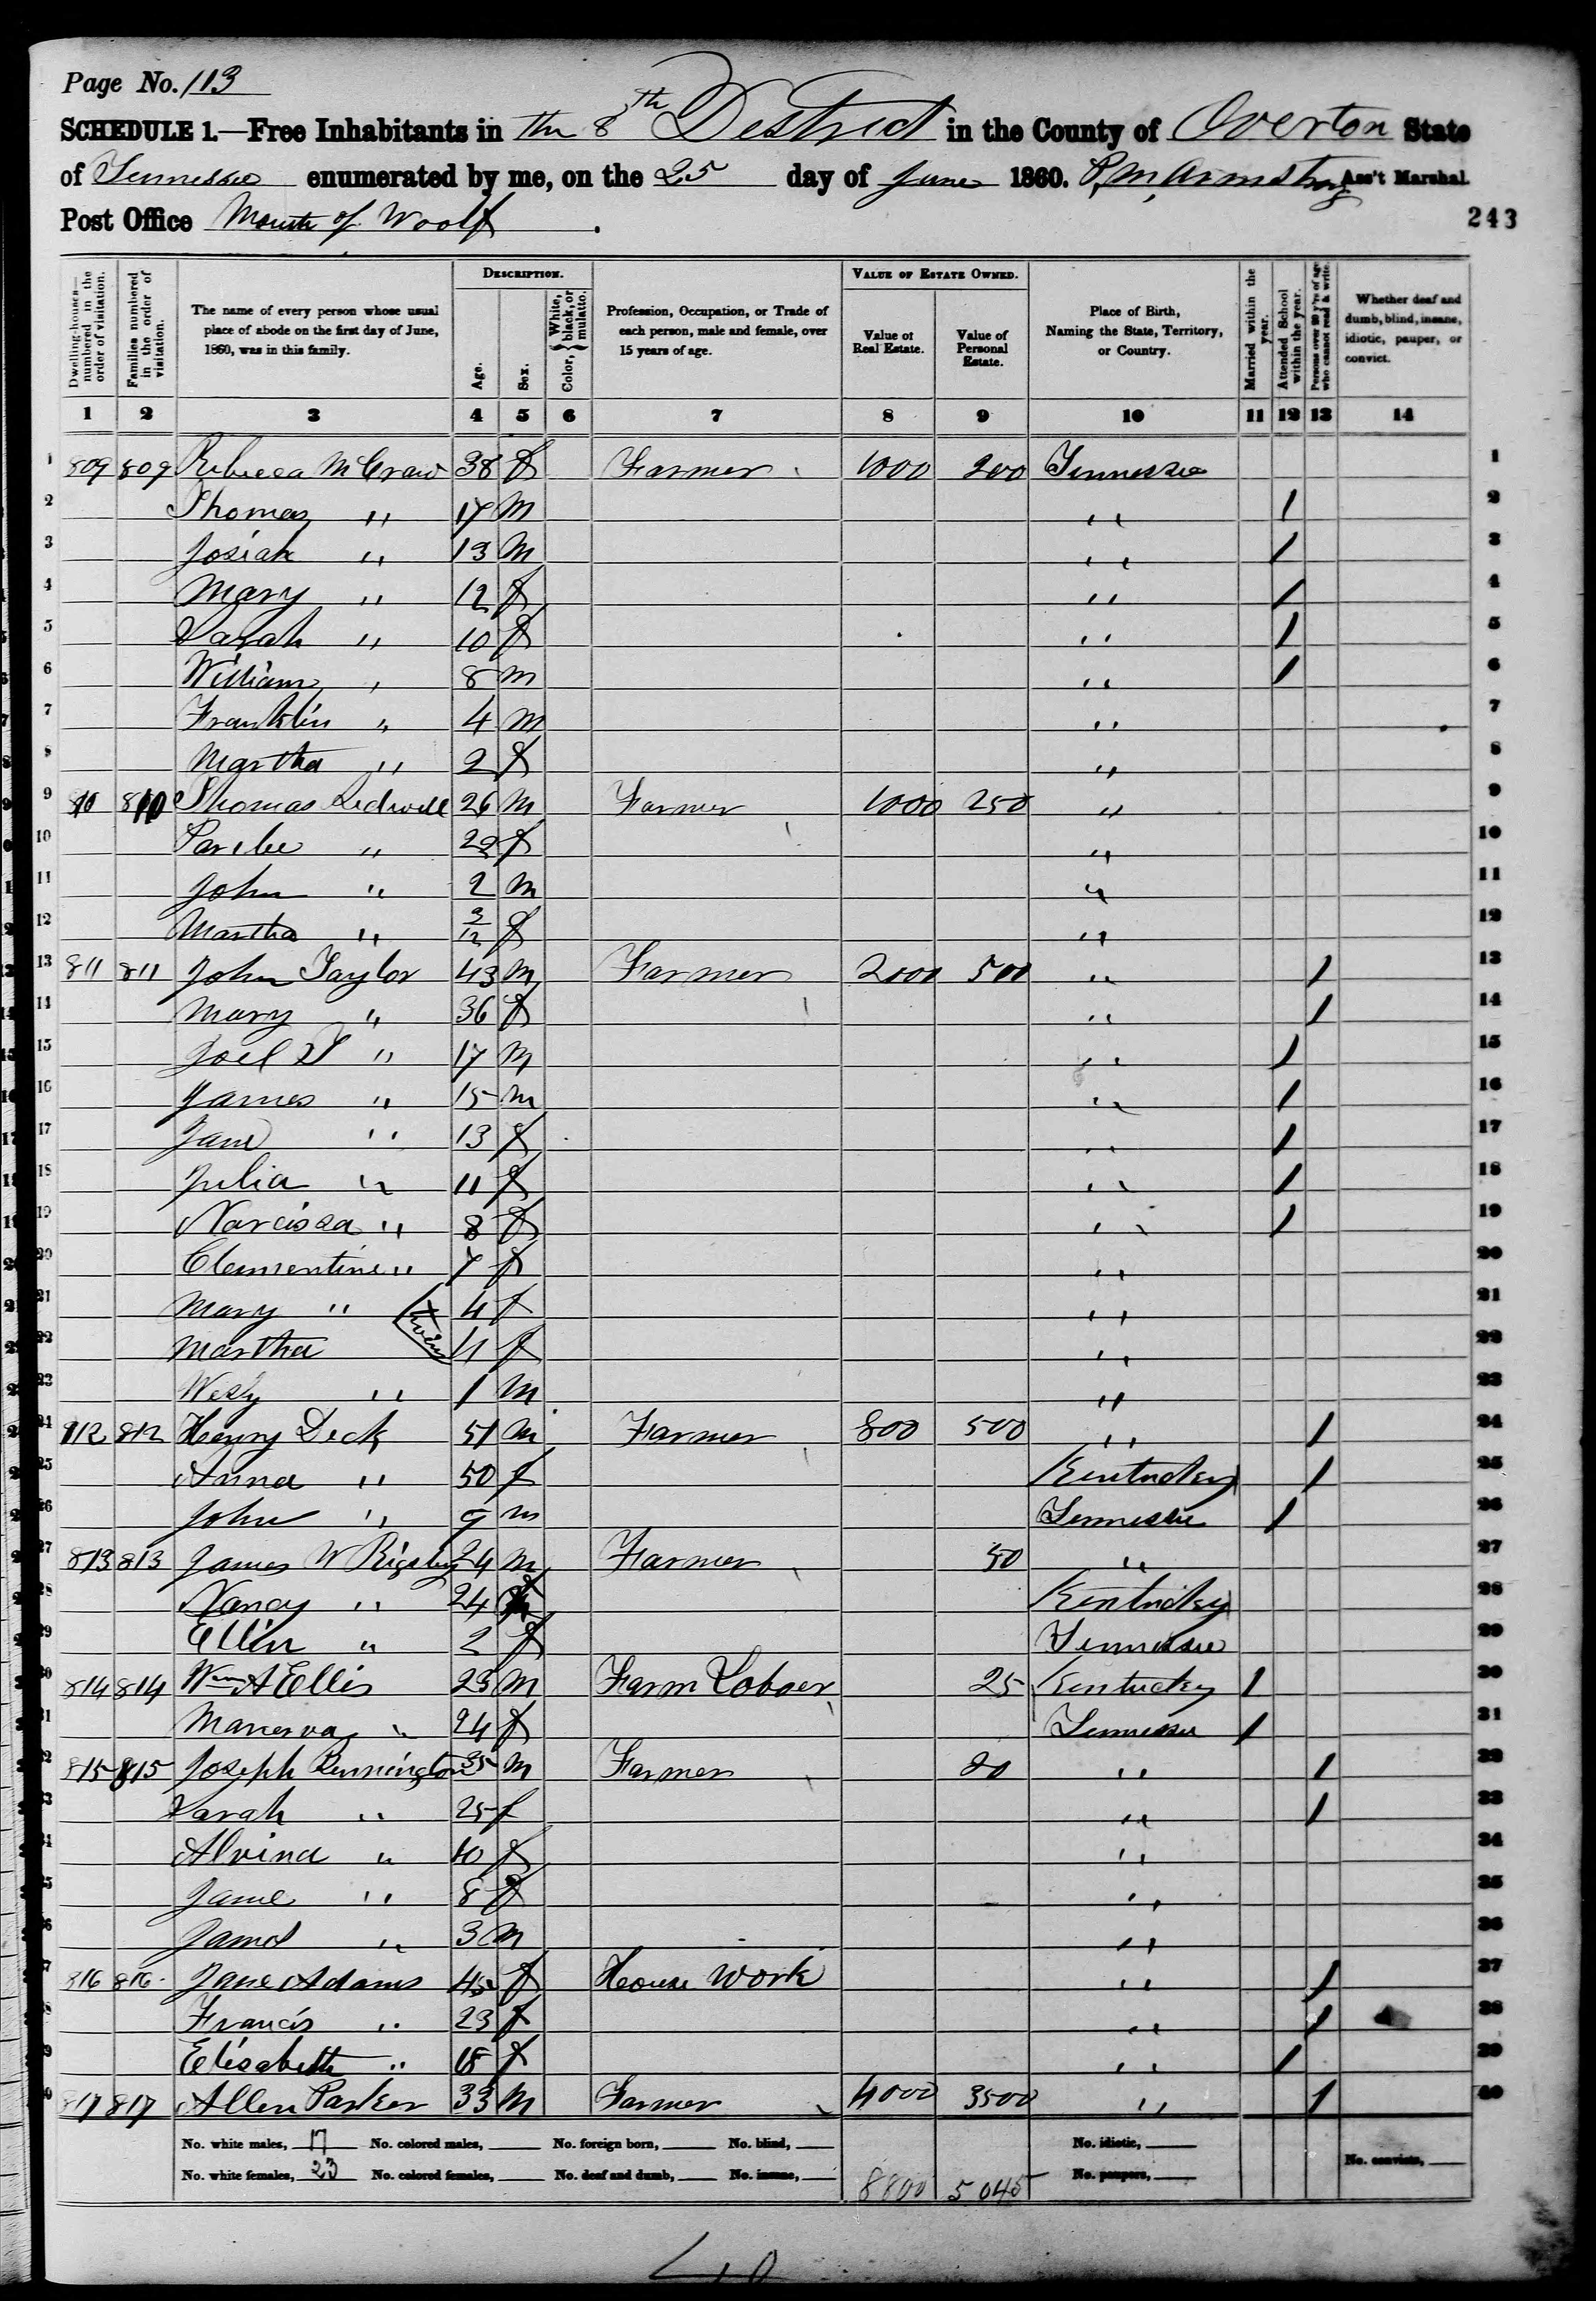 Page No. 113
SCHEDULE 1.—Free Inhabitants in the 8th District in the County of Overton State
of Tennessee enumerated by me, on the 25 day of June 1860. P. M. Armstrong Ass't Marshal.
Post Office Mouth of Woolf
243
Dwelling-houses—numbered in the order of visitation. Families numbered in the order of visitation. The name of every person whose usual place of abode on the first day of June, 1860, was in this family. DESCRIPTION. Age. Sex. Color, { White, black, or mulatto. Profession, Occupation, or Trade of each person, male and female, over 15 years of age. VALUE OF ESTATE OWNED. Value of Real Estate. Value of Personal Estate. Place of Birth, Naming the State, Territory, or Country. Married within the year. Attended School within the year. Persons over 20 y'rs of age who cannot read & write. Whether deaf and dumb, blind, insane, idiotic, pauper, or convict.
1 2 3 4 5 6 7 8 9 10 11 12 13 14
1 809 809 Rebecca McCraw 38 f Farmer 1000 200 Tennessee 1
2 Thomas " 17 m " / 2
3 Josiah " 13 m " / 3
4 Mary " 12 f " / 4
5 Sarah " 10 f " / 5
6 William " 8 m " / 6
7 Franklin " 4 m " 7
8 Martha " 2 f " 8
9 810 810 Thomas Ledwell 26 m Farmer 1000 250 " 9
10 " 22 f " 10
11 John " 2 m " 11
12 Martha " f " 12
13 811 811 John Taylor 43 m Farmer 2000 500 " / 13
14 Mary " 36 f " / 14
15 Joel T " 17 m " / 15
16 James " 15 m " / 16
17 Jane " 13 f " / 17
18 Julia " 11 f " / 18
19 Narcissa " 8 f " / 19
20 Clementine " 7 f " 20
21 Mary " twins 4 f " 21
22 Martha 4 f " 22
23 Wesly " 1 m " 23
24 812 812 Henry Deck 51 m Farmer 800 500 " / 24
25 Anna " 50 f Kentucky / 25
26 John " 9 m Tennessee / 26
27 813 813 James W Rigsby 24 m Farmer 50 " 27
28 Nancy " 24 f Kentucky 28
29 Ellin " 2 f Tennessee 29
30 814 814 Wm A Ellis 23 m Farm Laborer 25 Kentucky / 30
31 Manerva " 24 f Tennessee / 31
32 815 815 Joseph Pennington 35 m Farmer 20 " / 32
33 Sarah " 25 f " / 33
34 Alvina " 10 f " 34
35 Jane " 8 f " 35
36 James " 3 m " 36
37 816 816 Jane Adams 45 f House Work " / 37
38 Francis " 23 f " / 38
39 Elisabeth " 18 f " / 39
40 817 817 Allen Parker 33 m Farmer 4000 3500 " / 40
No. white males, 17 No. colored males, No. foreign born, No. blind, No. idiotic,
No. white females, 23 No. colored females, No. deaf and dumb, No. insane, 8800 5045 No. paupers, No. convicts,